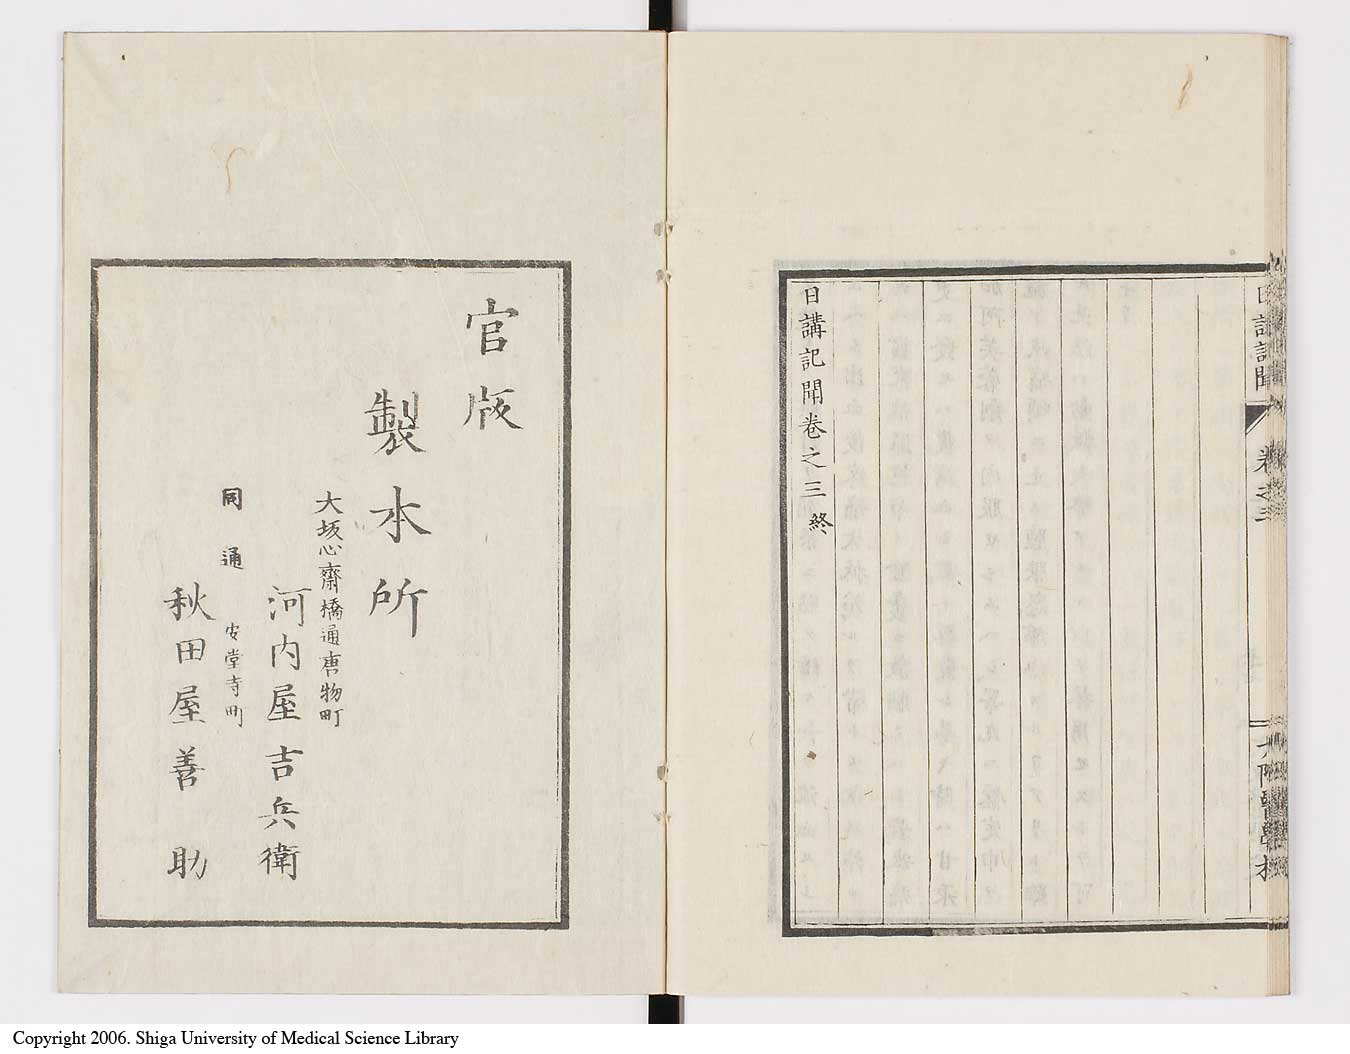 日講記聞
卷之三
大阪醫學校
日講記聞卷之三終
官版
製本所
大坂心齋橋通唐物町
河内屋吉兵衛
同通
安堂寺町
秋田屋善助
Copyright 2006. Shiga University of Medical Science Library